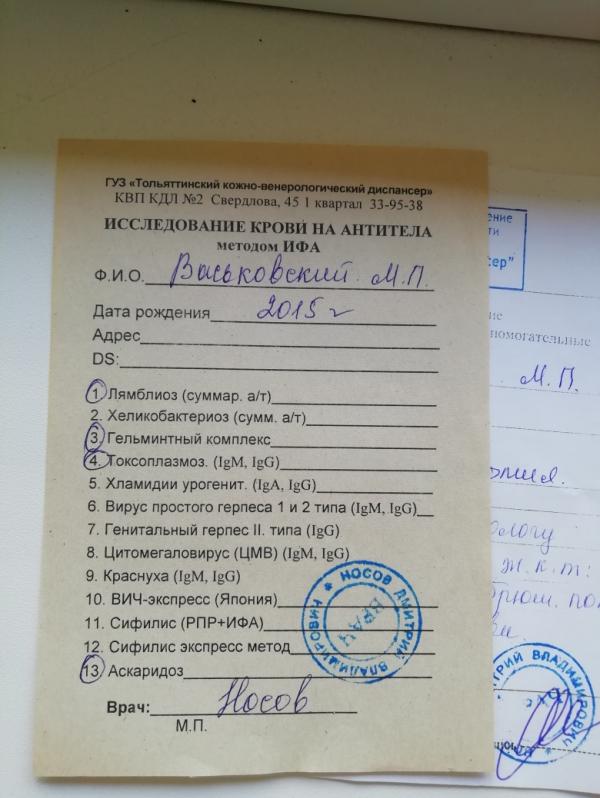 ГУЗ «Тольяттинский кожно-венерологический диспансер»
КВП КДЛ №2 Свердлова, 45 1 квартал 33-95-38
ИССЛЕДОВАНИЕ КРОВИ НА АНТИТЕЛА
методом ИФА
Ф.И.О. Васьковский М.П.
Дата рождения 2015 г
Адрес
DS:
1. Лямблиоз (суммар. а/т)
2. Хеликобактериоз (сумм. а/т)
3. Гельминтный комплекс
4. Токсоплазмоз. (IgM, IgG)
5. Хламидии урогенит. (IgA, IgG)
6. Вирус простого герпеса 1 и 2 типа (IgM, IgG)
7. Генитальный герпес II. типа (IgG)
8. Цитомегаловирус (ЦМВ) (IgM, IgG)
9. Краснуха (IgM, IgG)
10. ВИЧ-экспресс (Япония)
11. Сифилис (РПР+ИФА)
12. Сифилис экспресс метод
13. Аскаридоз
Врач: Носов
М.П.
НОСОВ ДМИТРИЙ ВЛАДИМИРОВИЧ
ВРАЧ
ение
сти
сер"
ие
помогательные
М.П.
ологу
ж.к.т:
ТРИЙ ВЛАДИМИРОВИЧ